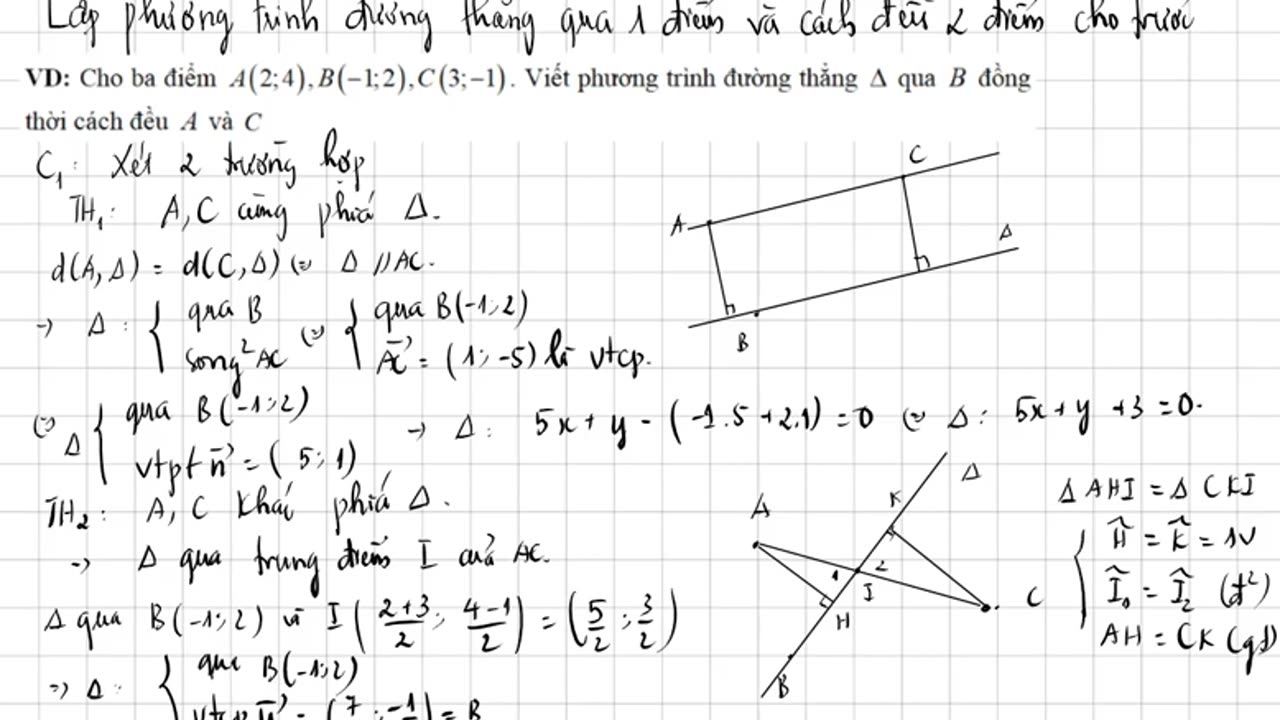 Lập phương trình đường thẳng qua 1 điểm và cách đều 2 điểm cho trước
VD: Cho ba điểm A(2;4), B(−1;2), C(3;−1). Viết phương trình đường thẳng Δ qua B đồng
thời cách đều A và C
C₁: Xét 2 trường hợp
TH₁: A, C cùng phía Δ.
d(A,Δ) = d(C,Δ) ⇔ Δ // AC.
→ Δ: { qua B
song² AC
⇔ { qua B(-1;2)
AC→ = (1;-5) là vtcp.
A
C
Δ
B
⇔ Δ { qua B(-1;2)
vtpt n→ = (5;1)
→ Δ: 5x + y - (-1.5 + 2.1) = 0 ⇔ Δ: 5x + y + 3 = 0.
TH₂: A, C khác phía Δ.
→ Δ qua trung điểm I của AC.
Δ qua B(-1;2) và I(2+3/2; 4-1/2) = (5/2; 3/2)
→ Δ: { qua B(-1;2)
A
K
Δ
1
2
I
H
C
B
Δ AHI = Δ CKI
{ Ĥ = K̂ = 1V
Î₁ = Î₂ (đ²)
AH = CK (gt)